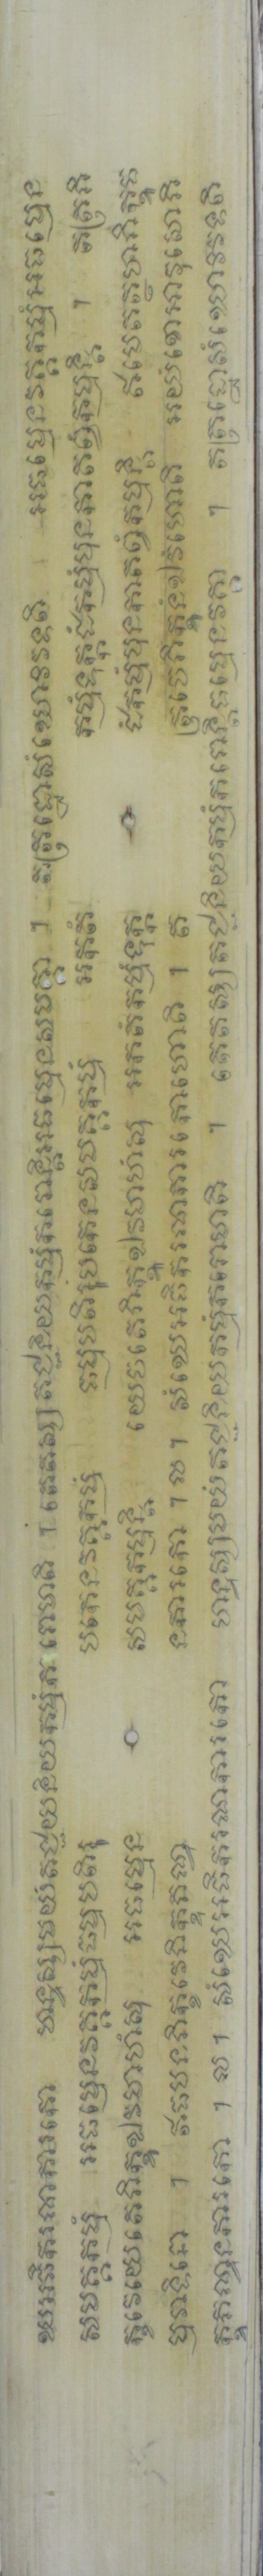 ឃេអធិករណការកោ ហន្ទស្សមយំតជ្ជនីយកម្មំករោមាតិ ។ តេតស្សតជ្ជនីយកម្មំករោន្តិអធម្មេនសមគ្គា ។ តត្រដ្ឋោសំឃោវិវទតិ អធម្មេនវគ្គកម្មំអធម្មេន
សមគ្គកម្មំ អធម្មេនវគ្គកម្មំធម្មបតិរូ បកេនវគ្គកម្មំ ធម្មបតិរូបកេនសមគ្គកម្មំ អកតំ កម្មំទុក្កដំកម្មំបុនកាតព្វំកម្មន្តិ ។ តត្រភិ
ក្ខវេយេតេភិក្ខូឯវមាហំសុ អធម្មេន សមគ្គកម្មន្តិ យេចតេភិក្ខូឯវមាហំសុ អកតំកម្មំទុក្ក ដំកម្មំបុនកាតព្វំកម្មន្តិ ឥមេតត្ថភិក្ខូធ
ម្មវាទិនោ ។ ឥធបនភិក្ខវេភិក្ខុភណ្ឌ នការកោ ។ ល ។ សំឃេអធិករណការកោហោតិ ។ ត ត្រចេភិក្ខូនំឯវំហោតិ អយំខោអាវុសោភិ
ក្ខុភណ្ឌនការកោ ។ ល ។ សំឃេអធិករណការកោ ហន្ទស្សមយំតជ្ជនីយកម្មំករោមាតិ ។ តេតស្សតជ្ជនីយកម្មំករោន្តិធម្មេនវគ្គា ។ តត្រដ្ឋោសំឃោវិវទតិ